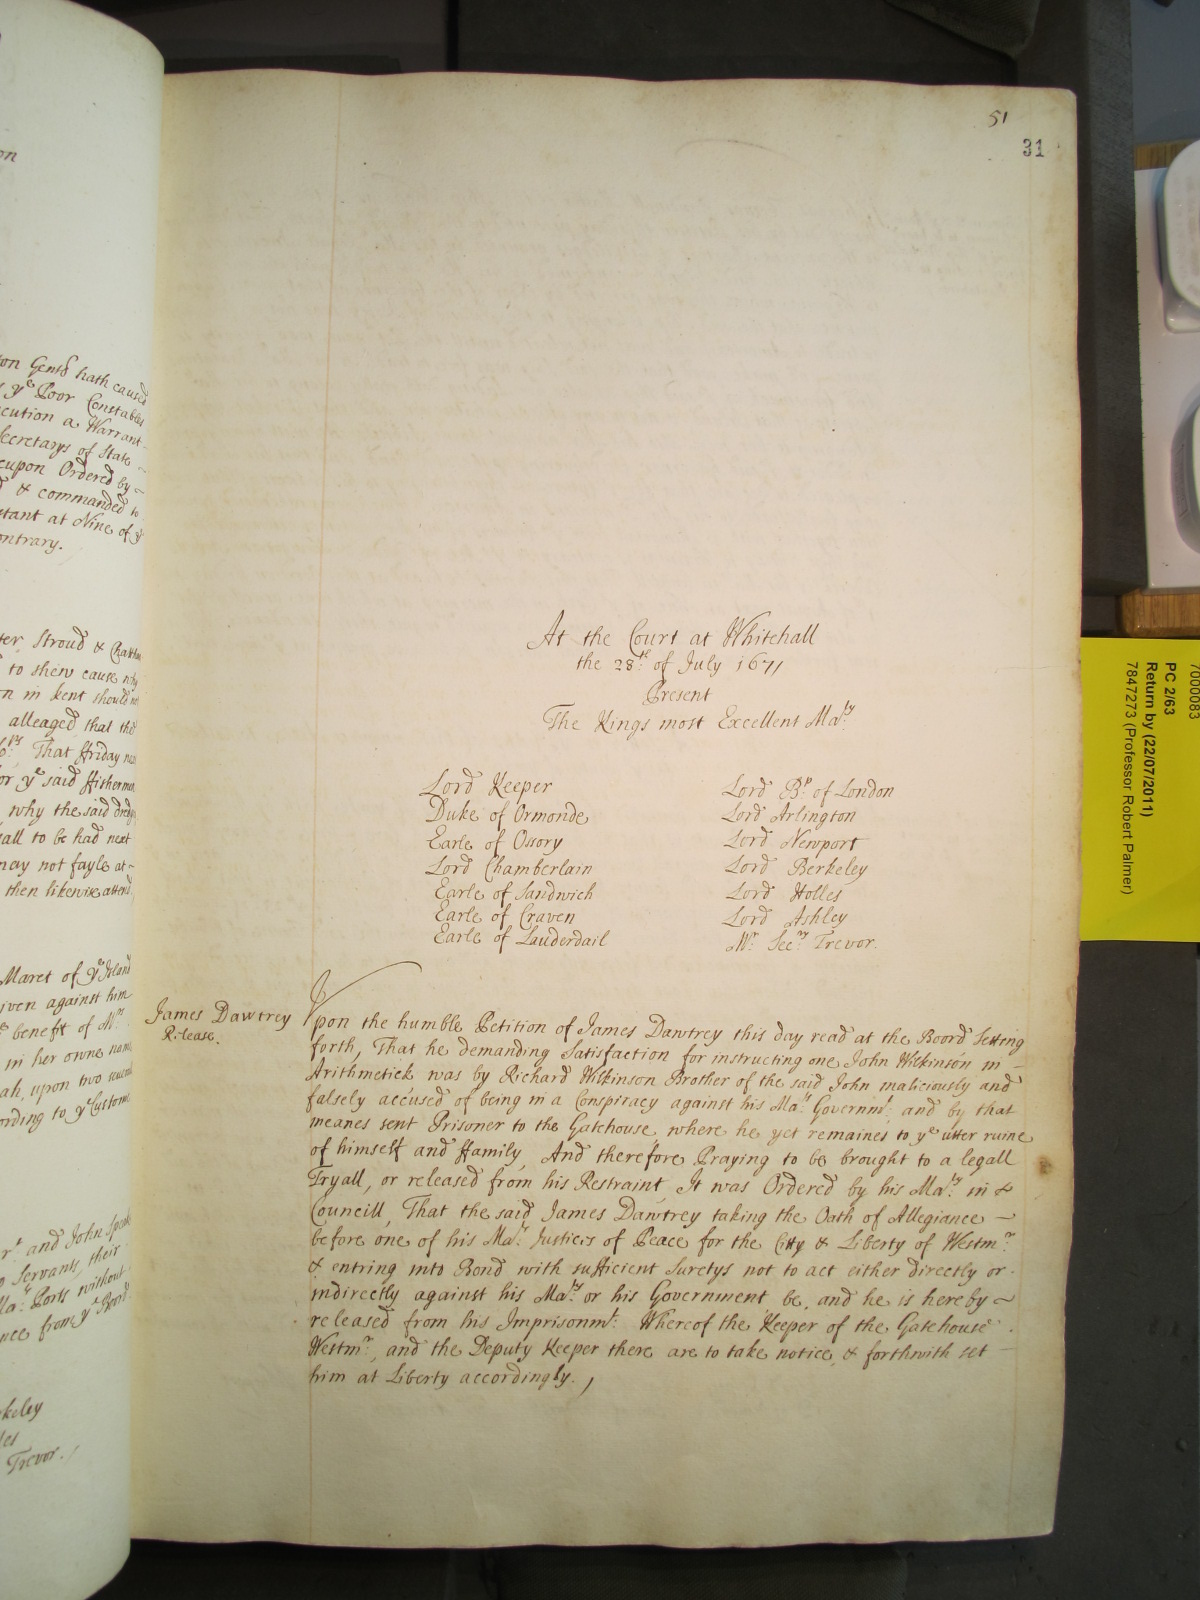 51
31
on
on Gent^s hath caused
y^e Poor Constables
cution a Warrant
Secretarys of State
upon Ordered by
& commanded to
stant at Nine of y^e
ontrary.
ter, Stroud &
to shew cause why
n in kent should
alleaged, that the
That ffriday
or y^e said ffishermen
why the said
all to be had next
may not fayle at
then likewise attend
Maret of y^e Island
iven against him
benefit of M^rs
in her owne name
ah, upon two
ording to y^e Custome
and John
Servants, their
Ma^ts Ports without
nce from y^e Bord
keley
les
Trevor.
At the Court at Whitehall
the 28^th of July 1671
Present
The Kings most Excellent Ma^ty
Lord Keeper
Duke of Ormonde
Earle of Ossory
Lord Chamberlain
Earle of Sandwich
Earle of Craven
Earle of Lauderdail
Lord B^p of London
Lord Arlington
Lord Newport
Lord Berkeley
Lord Holles
Lord Ashley
M^r Sec^ry Trevor.
James Dawtrey
Release.
Upon the humble Petition of James Dawtrey this day read at the Boord Setting
forth, That he demanding Satisfaction for instructing one John Wilkinson in
Arithmetick was by Richard Wilkinson Brother of the said John maliciously and
falsely accused of being in a Conspiracy against his Ma^ts Governm^t: and by that
meanes sent Prisoner to the Gatehouse, where he yet remaines to y^e utter ruine
of himself and ffamily, And therefore Praying to be brought to a legall
Tryall, or released from his Restraint, It was Ordered by his Ma^ty in
Councill, That the said James Dawtrey taking the Oath of Allegiance
before one of his Ma^ts Justices of Peace for the Citty & Liberty of Westm^r
& entring into Bond with sufficient Suretys not to act either directly or
indirectly against his Ma^ty or his Government be, and he is hereby
released from his Imprisonm^t: Whereof the Keeper of the Gatehouse
Westm^r, and the Deputy Keeper there are to take notice, & forthwith set
him at Liberty accordingly.
7000083
PC 2/63
Return by (22/07/2011)
7847273 (Professor Robert Palmer)